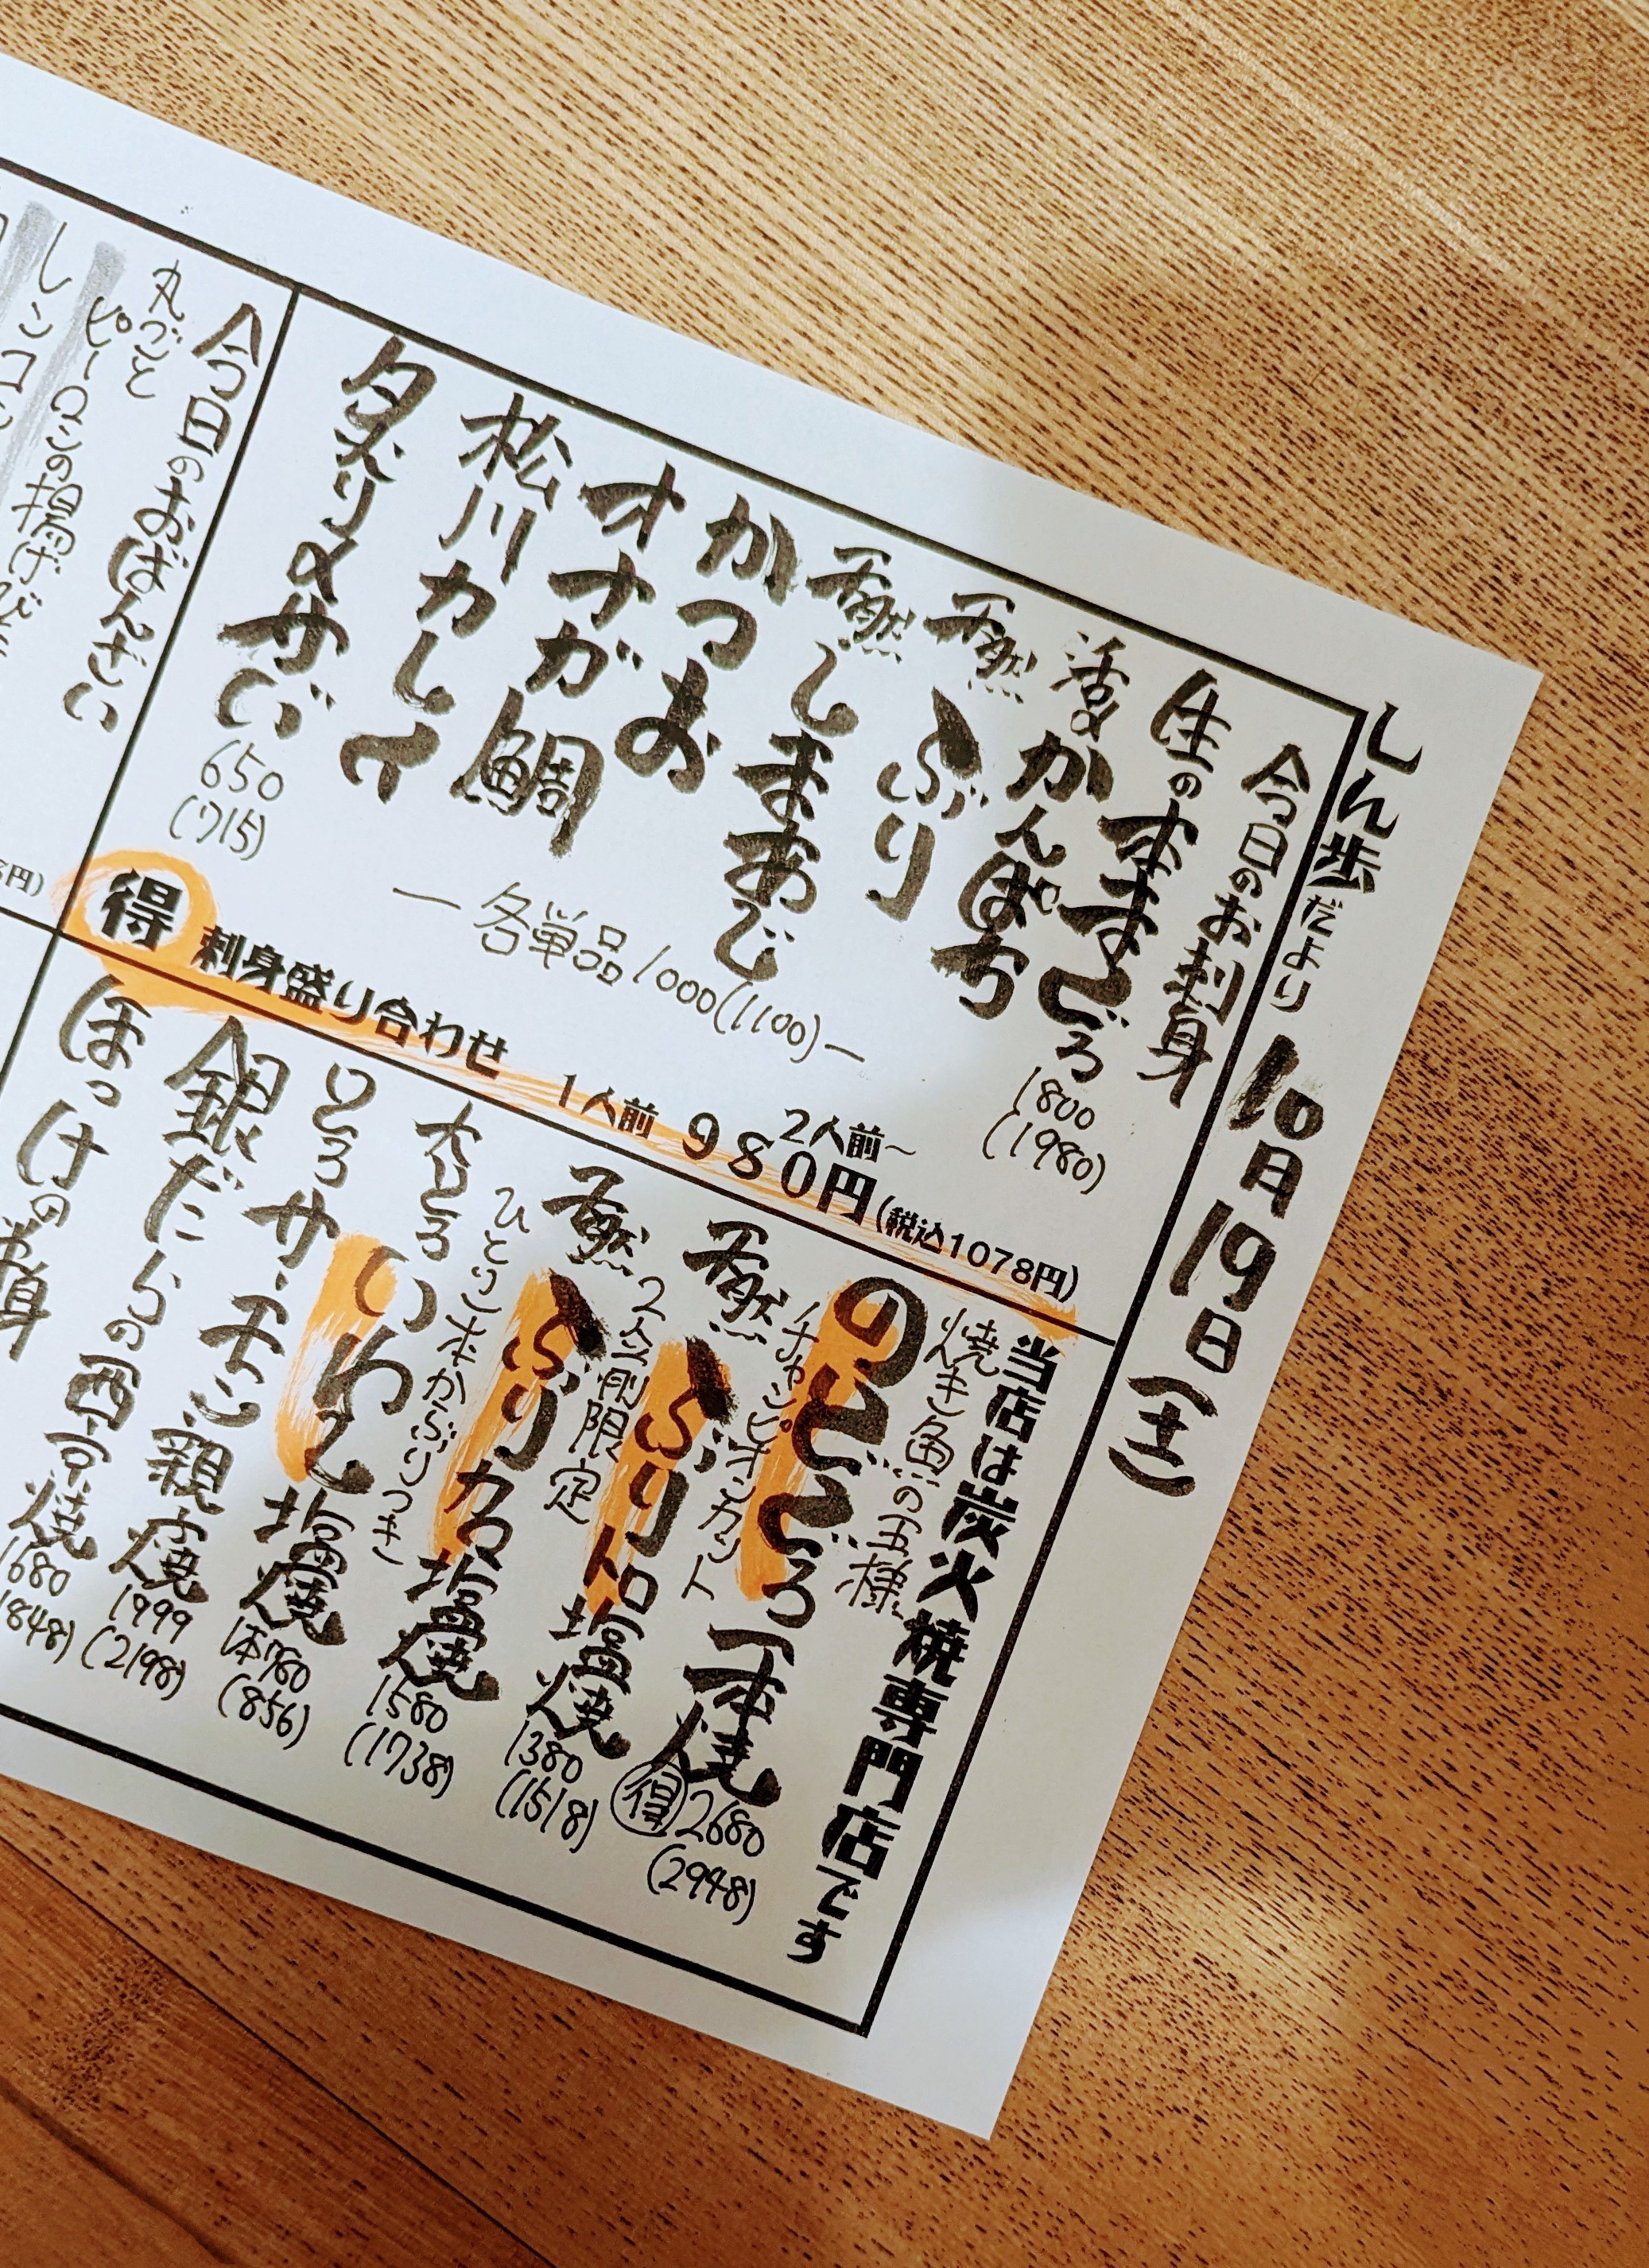 しん歩だより 10月19日(土)
今日のお刺身
生の本まぐろ 1800 (1980)
活〆かんぱち
天然 ぶり
天然 しまあじ
かつお
オナガ鯛
松川カレイ
ー各単品1000(1100)ー
夕張〆サバ 650 (715)
得 刺身盛り合わせ 1人前 980円(税込1078円)
2人前~
当店は炭火焼専門店です
焼き魚の王様
のどぐろ一本焼 2680 (2948)
チャンピオンカット
得
天然 ぶりトロ塩焼 1380 (1518)
2人前限定
天然 ぶりカマ塩焼 1580 (1738)
大とろ いわし塩焼 1本780 (856)
とろサーモン親焼 1999 (2198)
銀だらの西京焼 1680 1848)
ほっけの
今日のおばんざい